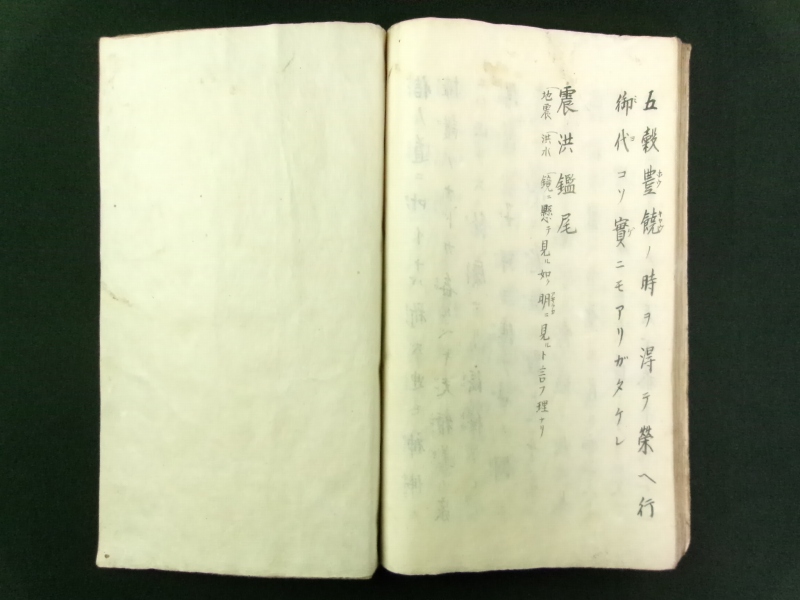 五穀豊饒ノ時ヲ得テ榮ヘ行
御代コソ實ニモアリガタケレ
震洪鑑尾
地震 洪水 鏡ニ懸テ見ル如ク明ニ見ルト言フ理ナリ